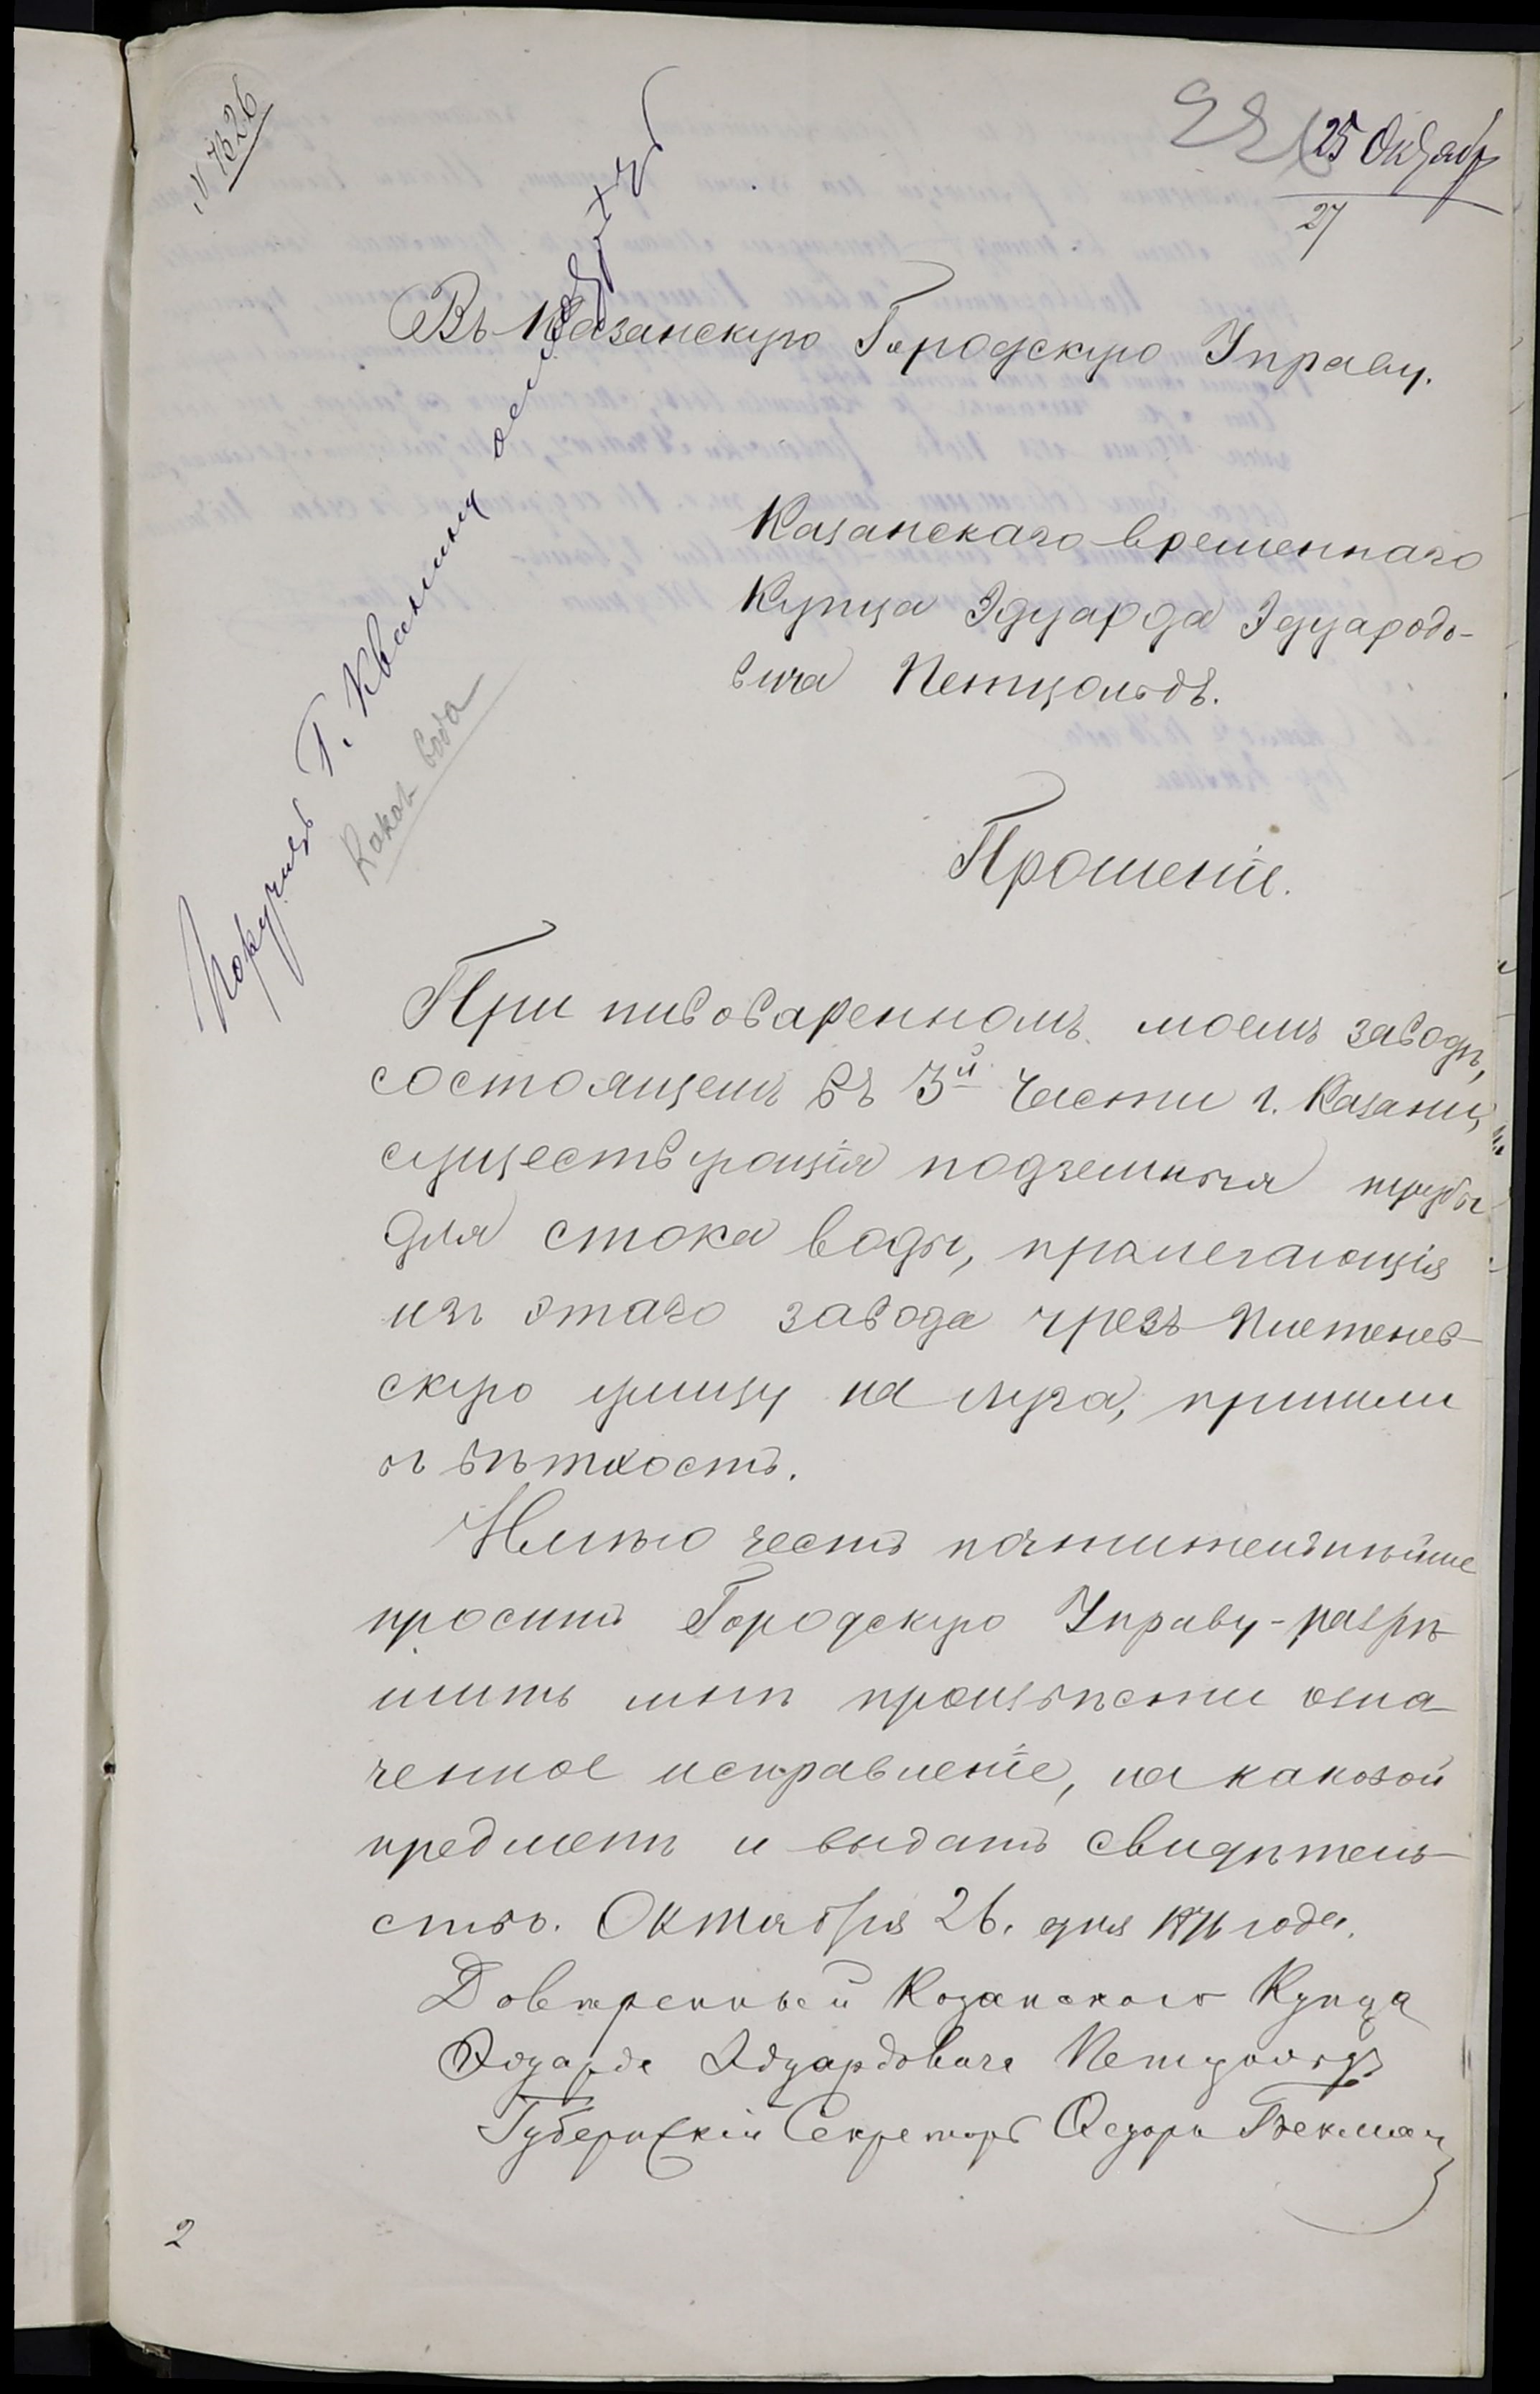 № 7326
25 Октябр
27
Въ Казанскую Городскую Управу.
Казанскаго временнаго
Купца Эдуарда Эдуардо-
вича Петцольдъ.
Прошеніе.
Поручить Г. Квалинину
Какая вода
При пивоваренномъ моемъ заводѣ,
состоящемъ въ 3й части г. Казани,
существующія подземныя трубы
для стока воды, пролегающія
изъ этаго завода чрезъ Плетенев-
скую улицу на луга, пришли
въ вѣтхость.
Имѣю честь почтительнѣйше
просить Городскую Управу - разрѣ-
шить мнѣ произвѣсти озна-
ченное исправленіе, на каковой
предметъ и выдать свидѣтель-
ство. Октября 26. дня 1876 года.
Довѣренный Казанскаго Купца
Эдуарда Эдуардовича Петцольдъ
Губернскій Секретарь Ѳедоръ Бекман
2